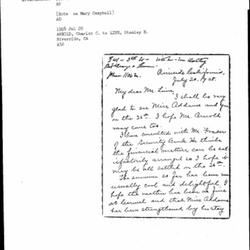 AD
[Note re Mary Campbell]
AD
1948 Jul 20
ARNOLD, Charles C. to LINE, Stanley R.
Riverside, CA
ASD
Riverside California,
July 20, 1948.
My dear Mr. Line,
I shall be very
glad to see Miss Addams and you
on the 26th. I hope Mr. Arnold
may come too.
I have consulted with Mr. Frazer
of the Security Bank. He thinks
the financial matters can be sat-
isfactorily arranged so I hope it
may be all settled on the 26th.
The summer so far has been un-
usually cool and delightful. I
hope the weather has been as good
at and that Miss Addams
has been strengthened by her stay